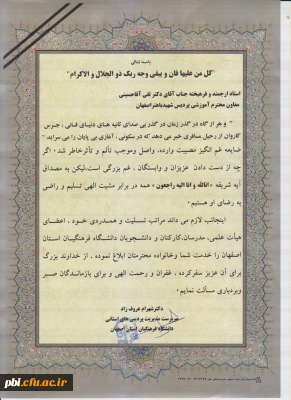 باسمه تعالی
"کل من علیها فان و یبقی وجه ربک ذو الجلال و الاکرام"
استاد ارجمند و فرهیخته جناب آقای دکتر نقی آقاحسینی
معاون محترم آموزشی پردیس شهید باهنر اصفهان
" و هر از گاه در گذر زمان در گذر بی صدای ثانیه های دنیای فانی، جرس
کاروان از رحیل مسافری خبر می دهد که در سکونی، آغازی بی پایان را می سراید "
ضایعه غم انگیز مصیبت وارده، واصل وموجب تألم و تأثرخاطر شد. اگر
چه از دست دادن عزیزان و وابستگان، غم بزرگی است،لیکن به مصداق
آیه شریفه «اناالله و انا الیه راجعون» همه در برابر مشیت الهی تسلیم و راضی
به رضای او هستیم.
اینجانب لازم می داند مراتب تسلیت و همدردی خود، اعضای
هیأت علمی، مدرسان،کارکنان و دانشجویان دانشگاه فرهنگیان استان
اصفهان را خدمت شما وخانواده محترمتان ابلاغ نموده، از خداوند بزرگ
برای آن عزیز سفرکرده، غفران و رحمت الهی و برای بازماندگان صبر
وبردباری مسألت نمایم.
دکترشهرام عروف زاد
سرپرست مدیریت پردیس های استانی
دانشگاه فرهنگیان استان اصفهان
pbi.cfu.ac.ir